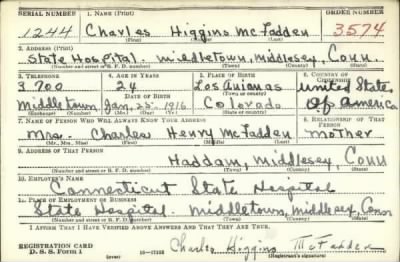 SERIAL NUMBER 1. NAME (Print) ORDER NUMBER
1244 Charles Higgins McFadden 3574
(First) (Middle) (Last)
2. ADDRESS (Print)
State Hospital. Middletown, Middlesex, Conn.
(Number and street or R. F. D. number) (Town) (County) (State)
3. TELEPHONE 4. AGE IN YEARS 5. PLACE OF BIRTH 6. COUNTRY OF CITIZENSHIP
3700 24 Los Animas United States
DATE OF BIRTH
Middletown Jan. 25- 1916 Colorado of America
7. NAME OF PERSON WHO WILL ALWAYS KNOW YOUR ADDRESS 8. RELATIONSHIP OF THAT PERSON
Mrs. Charles Henry McFadden Mother
(Mr., Mrs., Miss) (First) (Middle) (Last)
9. ADDRESS OF THAT PERSON
Haddam, Middlesex, Conn
(Number and street or R. F. D. number) (Town) (County) (State)
10. EMPLOYER'S NAME
Connecticut State Hospital
11. PLACE OF EMPLOYMENT OR BUSINESS
State Hospital. Middletown, Middlesex, Conn
(Number and street or R. F. D. number) (Town) (County) (State)
I AFFIRM THAT I HAVE VERIFIED ABOVE ANSWERS AND THAT THEY ARE TRUE.
REGISTRATION CARD
D. S. S. Form 1 (over) Charles Higgins McFadden
(Registrant's signature)